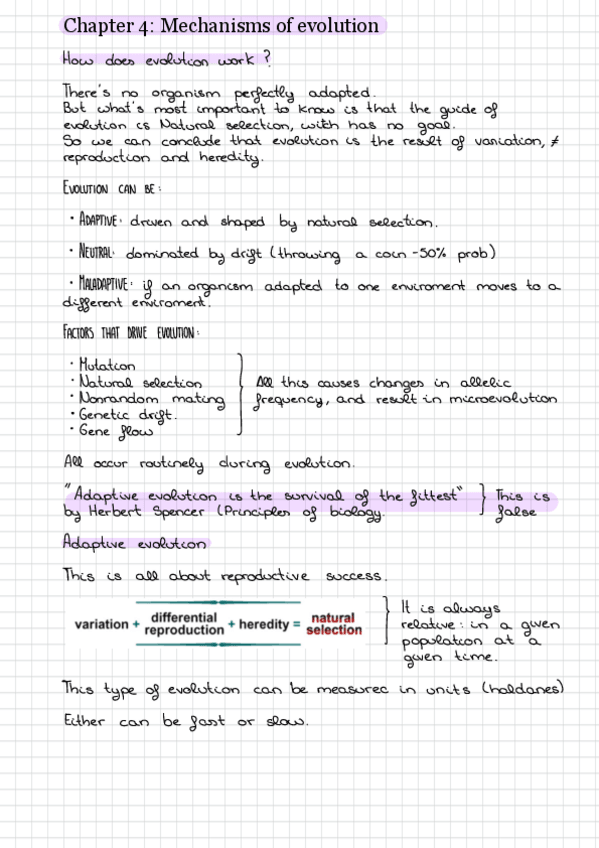 Chapter 4: Mechanisms of evolution
How does evolution work ?
There's no organism perfectly adapted.
But what's most important to know is that the guide of
evolution is Natural selection, with has no goal.
So we can conclude that evolution is the result of variation, ≠
reproduction and heredity.
EVOLUTION CAN BE:
· ADAPTIVE: driven and shaped by natural selection.
· NEUTRAL: dominated by drift (throwing a coin -50% prob)
· MALADAPTIVE: if an organism adapted to one enviroment moves to a
different enviroment.
FACTORS THAT DRIVE EVOLUTION:
· Mutation
· Natural selection
· Nonrandom mating
· Genetic drift.
· Gene flow
All this causes changes in allelic
frequency, and result in microevolution
All occur routinely during evolution.
"Adaptive evolution is the survival of the fittest"
by Herbert Spencer (Principles of biology.
This is
false
Adaptive evolution
This is all about reproductive success.
variation + differential reproduction + heredity = natural selection
It is always
relative: in a given
population at a
given time.
This type of evolution can be measured in units (haldanes)
Either can be fast or slow.